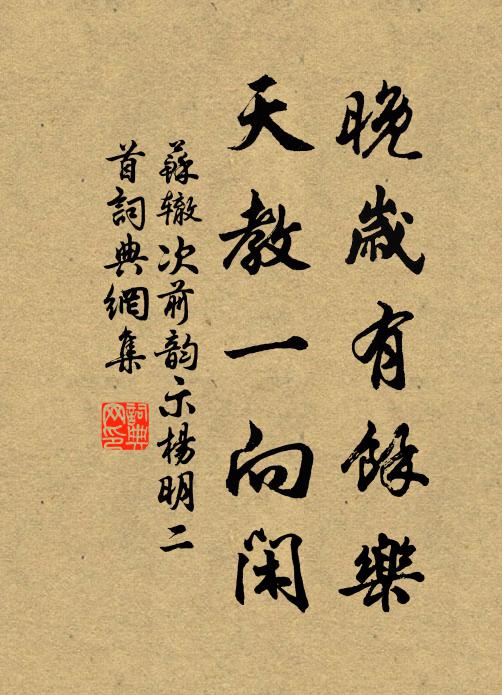 晚歲有餘樂
天教一向閑
蘇辙次前韵示楊明二
首詞典網集
詞典网印